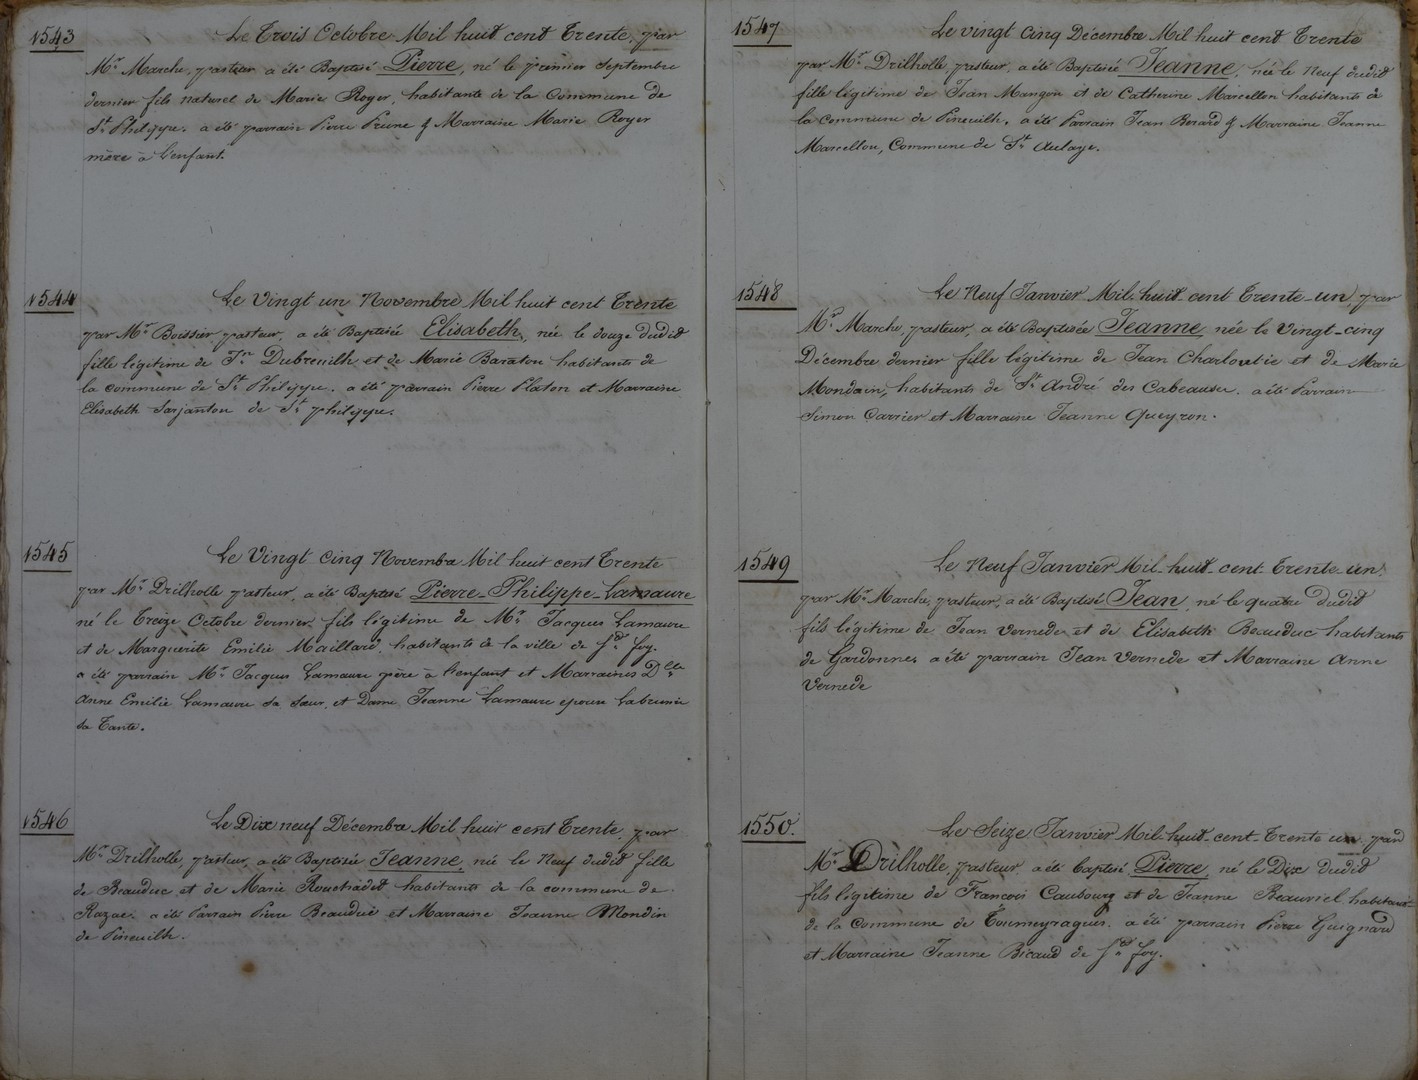 1543
Le Trois Octobre Mil huit cent Trente, par
Mr Marche, pasteur a été Baptisé Pierre, né le premier Septembre
dernier fils naturel de Marie Royer, habitante de la Commune de
St Philippe. a été parrain Pierre Prune & Marraine Marie Royer
mère à l'enfant.
1544
Le Vingt un Novembre Mil huit cent Trente
par Mr Boissier pasteur, a été Baptisée Elisabeth, née le douze dudit
fille légitime de Jn Dubreuilh et de Marie Baraton habitants de
la commune de St Philippe. a été parrain Pierre Platon et Marraine
Elisabeth Sarjanton de St philippe.
1545
Le Vingt Cinq Novembre Mil huit cent Trente
par Mr Drilholle pasteur, a été Baptisé Pierre-Philippe-Lamaure
né le Treize Octobre dernier, fils légitime de Mr Jacques Lamaure
et de Marguerite Emilie Maillard, habitants de la ville de Ste Foy.
a été parrain Mr Jacques Lamaure père à l'enfant et Marraines Dlle
Anne Emilie Lamaure sa Sœur, et Dame Jeanne Lamaure epouse
sa Tante.
1546
Le Dix neuf Décembre Mil huit cent Trente, par
Mr Drilholle, pasteur, a été Baptisée Jeanne, née le Neuf dudit fille
de Beauduc et de Marie habitants de la commune de
Razac. a été Parrain Pierre Beauduc et Marraine Jeanne Mondin
de Pineuilh.
1547
Le vingt Cinq Décembre Mil huit cent Trente
par Mr Drilholle, pasteur, a été Baptisée Jeanne, née le Neuf dudit
fille légitime de Jean Mangon et de Catherine Marcellon habitants de
la commune de Pineuilh. a été Parrain Jean Berard & Marraine Jeanne
Marcellon, Commune de St Aulaye.
1548
Le Neuf Janvier Mil-huit-cent Trente-un, par
Mr Marche, pasteur, a été Baptisée Jeanne, née le Vingt-cinq
Décembre dernier fille légitime de Jean Charloutie et de Marie
Mondain, habitants de St André des Cabeauses. a été Parrain
Simon Carrier et Marraine Jeanne Queyron.
1549
Le Neuf Janvier Mil-huit-cent-Trente un,
par Mr Marche, pasteur, a été Baptisé Jean, né le quatre dudit
fils légitime de Jean Vernede et de Elisabeth Beauduc habitants
de Gardonnes, a été parrain Jean Vernede et Marraine Anne
Vernede
1550.
Le Seize Janvier-Mil-huit-cent-Trente un, par
Mr Drilholle, pasteur, a été baptisé Pierre, né le Dix dudit
fils légitime de François Caubourg et de Jeanne Beauriel habitans
de la Commune de Toumeyragues. a été parrain Pierre Guignard
et Marraine Jeanne Bicaud de Ste Foy.